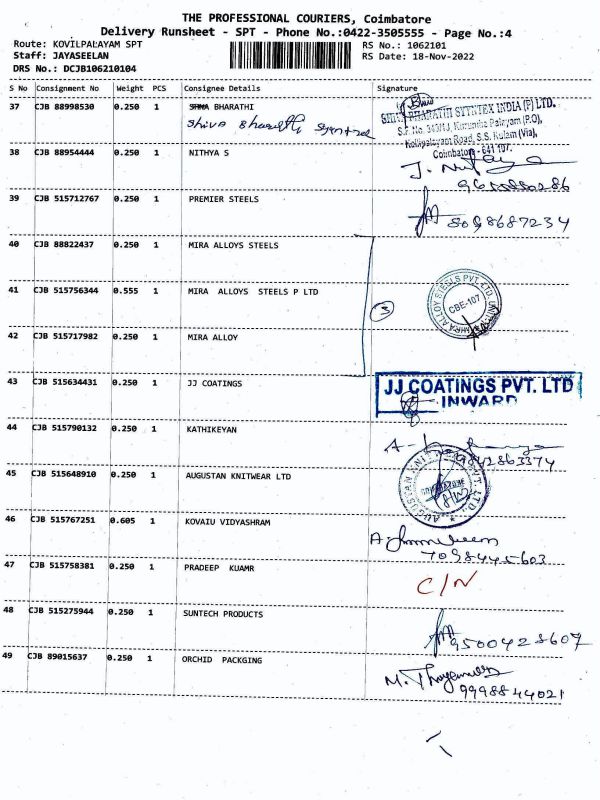 THE PROFESSIONAL COURIERS, Coimbatore
Delivery Runsheet - SPT - Phone No.:0422-3505555 - Page No.:4
Route: KOVILPALAYAM SPT
RS No.: 1062101
Staff: JAYASEELAN
RS Date: 18-Nov-2022
DRS No.: DCJB106210104
S No Consignment No Weight PCS Consignee Details Signature
37 CJB 88998530 0.250 1 SHWA BHARATHI
Shiva Bharathi
SHIVA BHARATHI SYNTEX INDIA (P) LTD.
S.F. No. 343/1J, Kurumba Palayam (P.O),
Kalipalayam Road, S.S. Kulam (Via),
Coimbatore - 641 107.
38 CJB 88954444 0.250 1 NITHYA S
39 CJB 515712767 0.250 1 PREMIER STEELS
8098687234
40 CJB 88822437 0.250 1 MIRA ALLOYS STEELS
41 CJB 515756344 0.555 1 MIRA ALLOYS STEELS P LTD
3
MIRA ALLOY STEELS PVT. LTD. CBE-107
42 CJB 515717982 0.250 1 MIRA ALLOY
43 CJB 515634431 0.250 1 JJ COATINGS
JJ COATINGS PVT. LTD
INWARD
44 CJB 515790132 0.250 1 KATHIKEYAN
9842863374
45 CJB 515648910 0.250 1 AUGUSTAN KNITWEAR LTD
46 CJB 515767251 0.605 1 KOVAIU VIDYASHRAM
7098445603
47 CJB 515758381 0.250 1 PRADEEP KUAMR
C/N
48 CJB 515275944 0.250 1 SUNTECH PRODUCTS
9500428607
49 CJB 89015637 0.250 1 ORCHID PACKGING
9998844021